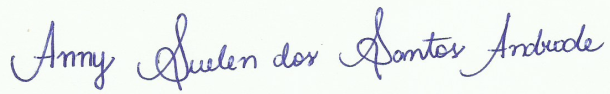 Anny Suelen dos Santos Andrade